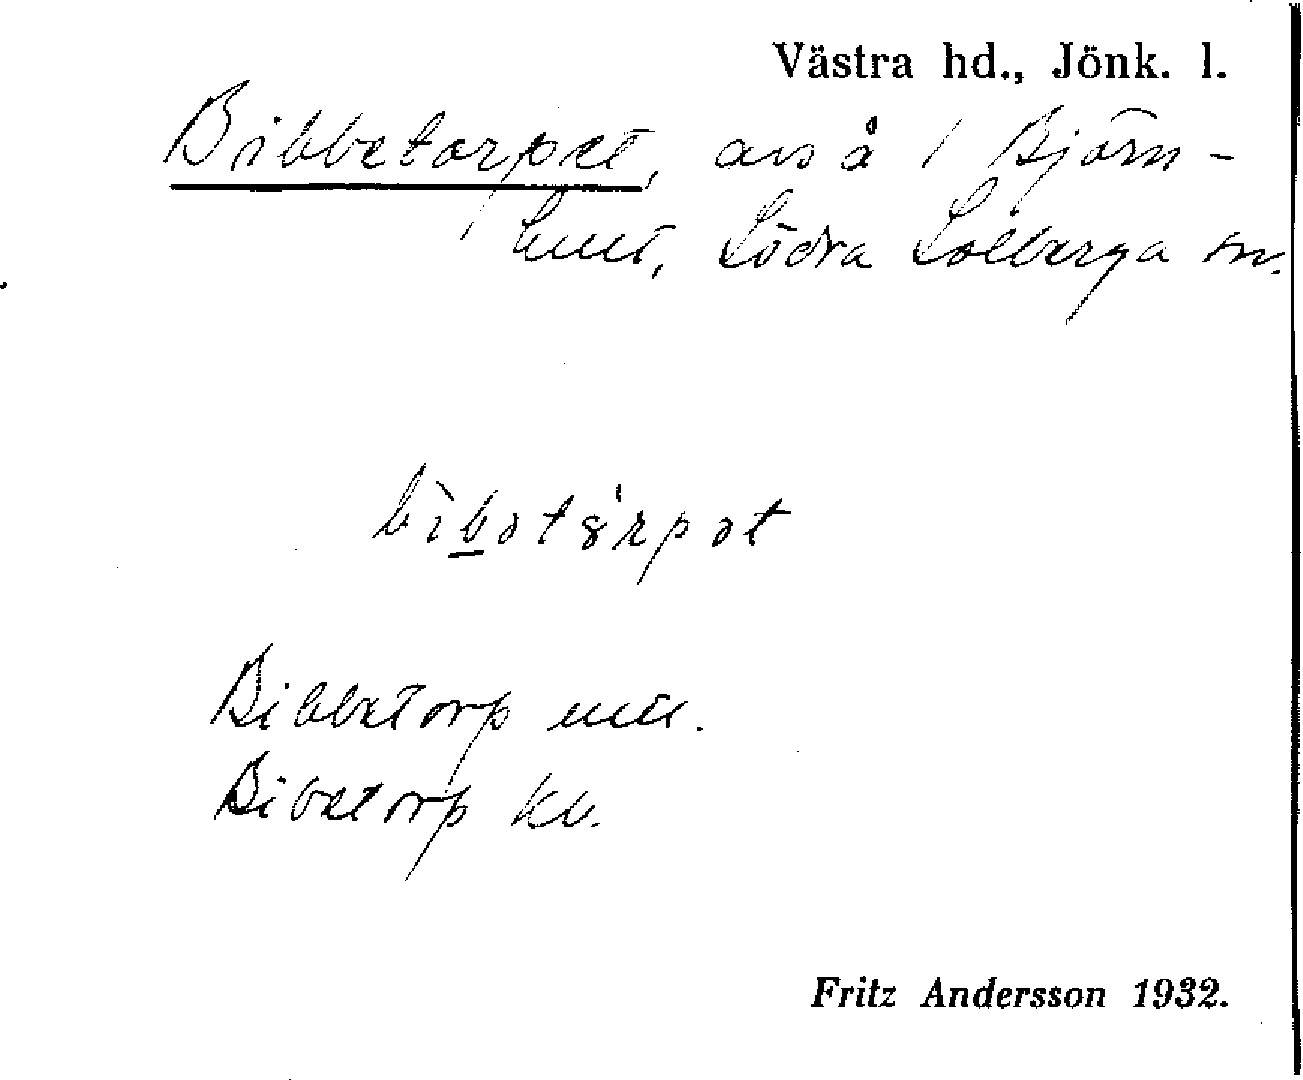 Västra hd., Jönk. l.
Bibbetorpet, avs å / Björn-
hult, Södra Solberga sn.
bìbətårpət
Bibbetorp
Bibetorp kb.
Fritz Andersson 1932.